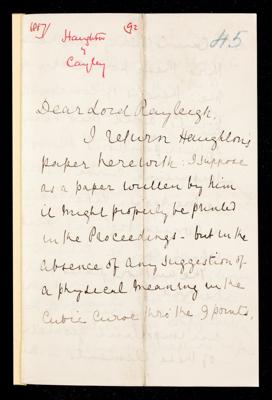 92
45
Haughton
&
Cayley
Dear Lord Rayleigh,
I return Haughton's
paper herewith: I suppose
as a paper written by him
it might properly be printed
in the Proceedings - but in the
absence of any suggestion of
a physical meaning in the
cubic curve thro' the 9 points,